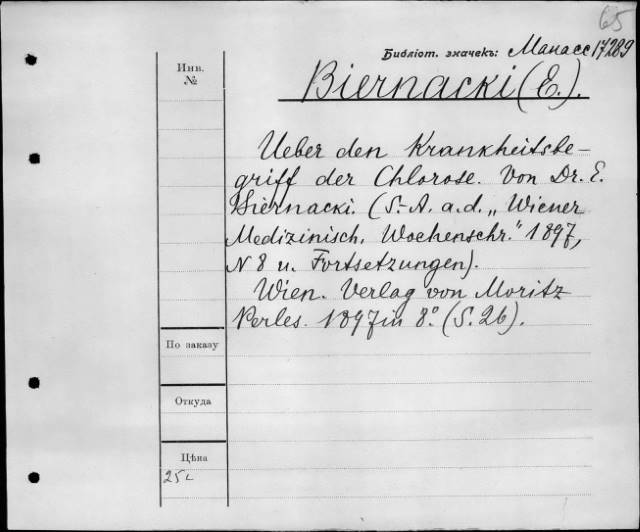 65
Библіот. значекъ: Манасс 17289
Инв.
№
Biernacki (E.).
Ueber den Krankheitsbe-
griff der Chlorose. Von Dr. E.
Biernacki. (S.-A. a. d. „Wiener
Medizinisch. Wochenschr." 1897,
N 8 u. Fortsetzungen).
Wien. Verlag von Moritz
Perles. 1897 in 8°. (S. 26).
По заказу
Откуда
Цѣна
25 c